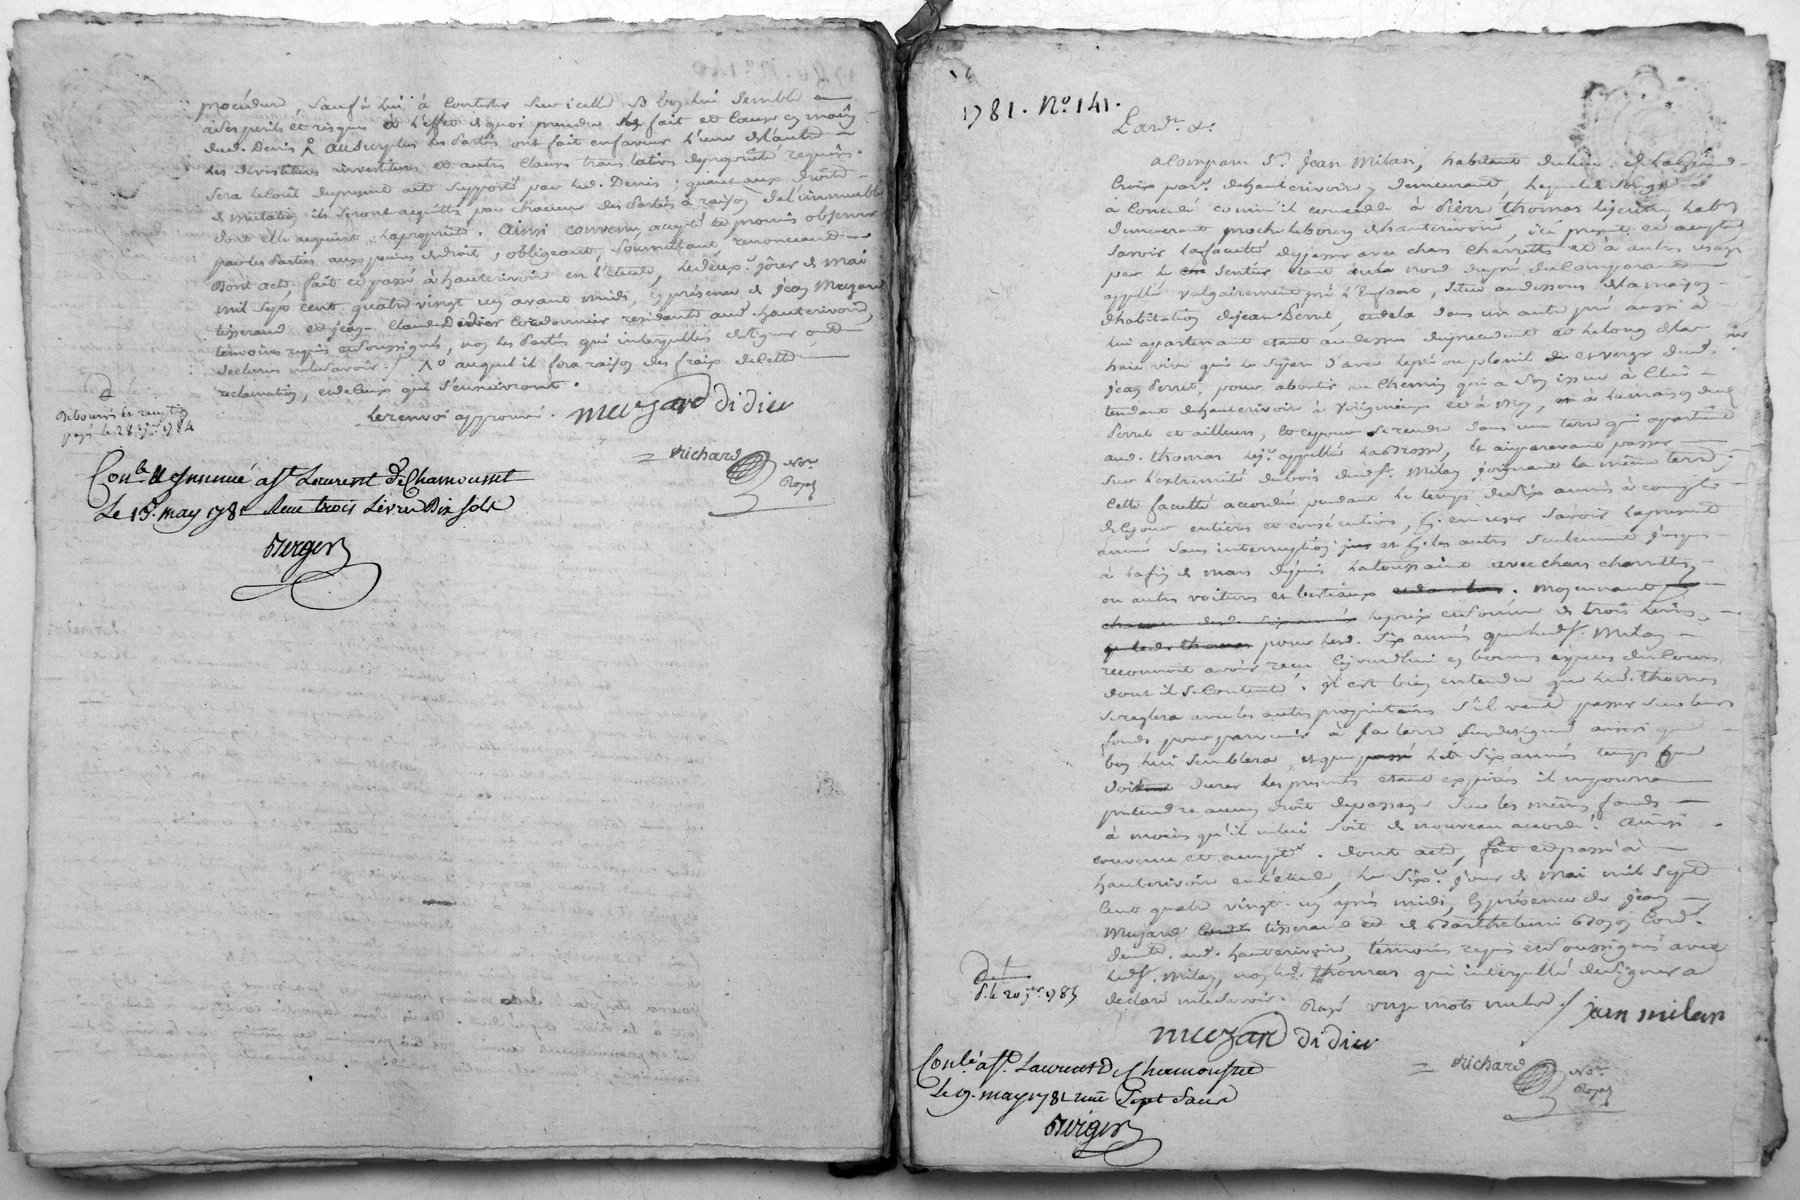 procédure, sauf à lui à contester sur icelle si bon lui semble
à ses perils et risques et à l'effet de quoi prendre fait et cause en mains
dud. Denis, au surplus les parties ont fait en faveur l'une de l'autre
les devestitures investitures et autres clauses translatives de propriété requises.
sera le coût du present acte supporté par led. Denis; quant aux droits
de mutation ils seront acquittés par chacune des parties à raison de l'immeuble
dont elle acquiert la propriété. Ainsi convenu, accepté et promis observer
par les parties aux peines de droit, obligeant, soumettant, renonceant
Dont acte, fait et passé à hauterivoire en l'étude, le deux.e jour de mai
mil sept cent quatre vingt un avant midi, en présence de jean Muzard
tisserand et jean Claude Didier Cordonnier residents aud. hauterivoire,
temoins requis et soussignés, non les parties qui interpellées de signer ont
declaré ne le savoir. / auquel il fera raison des fraix de cette
reclamation, et de ceux qui s'ensuivront.
le renvoi approuvé. muzard didier
= Richard Nre Royal
payé le 28 1784
Con.lé et Insinué a St. Laurent de Chamousset
Le 15. may 1781 Reçu trois Livres Dix sols
Verger
1781. No. 141.
Pard.t &.
a comparu Sr. jean Milan, habitant du lieu de la Grand
Croix par. de hauterivoire y demeurant, lequel de son gré
à concedé comm'il concede à Pierre thomas habitant
demeurant proche le bourg de hauterivoire, ici present et acceptant
savoir la faculté de passer avec chars charrettes et à autres usages
par le sentier étant au nord du pré du Comparant
appellé vulgairement pré l'Enfant, situé au dessous de la maison
d'habitation de jean Perret, et de la dans un autre pré aussi à
lui appartenant etant au dessus du precedent et le long de la
haie vive qui le separe d'avec le pré et verger dud.
jean Perret, pour aboutir au chemin qui a son issue à
tendant de hauterivoire à Virigneux et à la maison dud.
Perret et ailleurs, et ce pour se rendre dans une terre qui apartient
aud. thomas appellée la Brosse, et auparavant passer
sur l'extremité du bois dud. Sr. Milan joignant la même terre.
Cette faculté accordée pendant le temps de six années à compter
de ce jour entieres et consécutives, pr. en user savoir la presente
année sans interruption et pr. les autres seulement jusques
à la fin de mars depuis la toussaint avec chars charrettes,
ou autres voitures et bestiaux. moyennant
le prix et somme de trois livres,
pour lesd. six années que led. Sr. Milan
reconnoit avoir reçu cejourd'hui en bonnes espèces du cours
dont il se contente. il est bien entendu que led. thomas
se reglera avec les autres propriétaires s'il veut passer sur leurs
fonds pour parvenir à sa terre susdesignée ainsi que
bon lui semblera, et que les six années temps que
doivent durer les presentes etant expirées il ne pourra
pretendre aucun droit de passage sur les mêmes fonds
à moins qu'il ne lui soit de nouveau accordé. Ainsi
convenu et accepté. dont acte, fait et passé à
hauterivoire en l'étude, le six.e jour de mai mil sept
cent quatre vingt un après midi, en présence de jean
Muzard tisserand et de Barthelemi Cord.
demt. aud. hauterivoire, temoins requis et soussignés avec
led. Sr. Milan, non led. thomas qui interpellé de signer a
declaré ne le savoir. Rayé mots nuls. / jean milan
muzard didier
= Richard Nre Royal
Con.lé a St. Laurent de Chamousset
Le 9. may 1781 reçu Sept sous
Verger